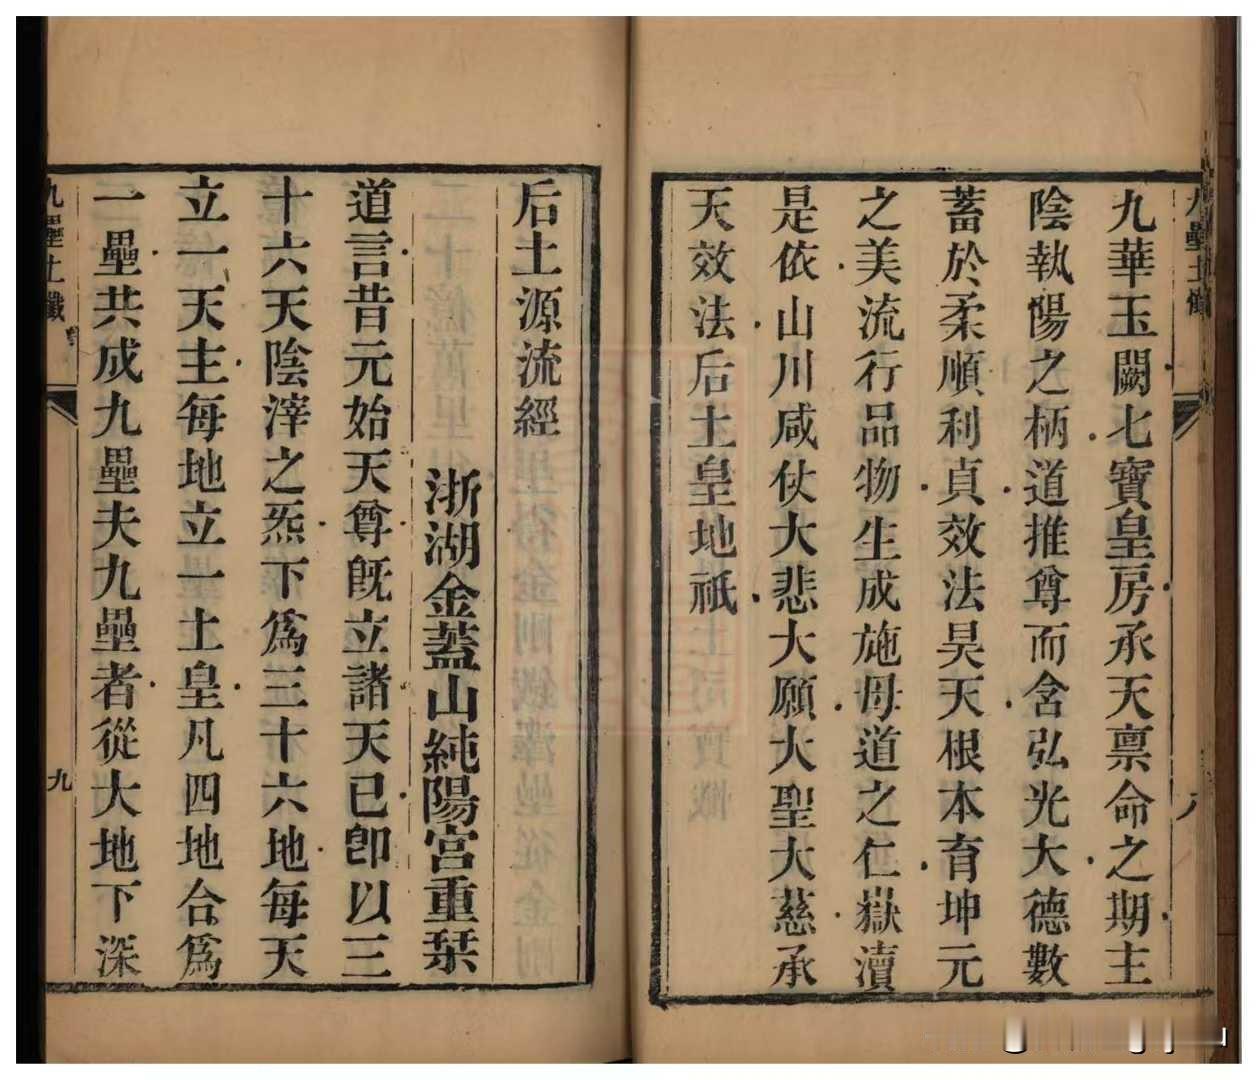 九壘土懺
八
九華玉闕七寶皇房承天禀命之期主
陰執陽之柄道推尊而含弘光大德數
蓄於柔順利貞效法昊天根本育坤元
之美流行品物生成施母道之仁嶽瀆
是依山川咸仗大悲大願大聖大慈承
天效法后土皇地祇
后土源流經
浙湖金蓋山純陽宮重栞
道言昔元始天尊旣立諸天已卽以三
十六天陰滓之炁下爲三十六地每天
立一天主每地立一土皇凡四地合爲
一壘共成九壘夫九壘者從大地下深
九壘土懺
九